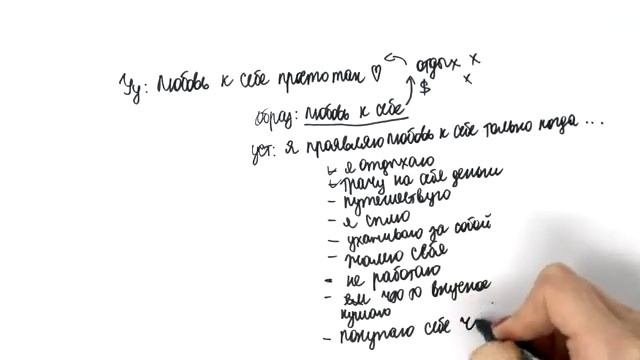 Уу: Любовь к себе просто так ♡ отдых x
$ x
образ: любовь к себе
уст: я проявляю любовь к себе только когда ...
- я отдыхаю
- трачу на себя деньги
- путешествую
- я сплю
- ухаживаю за собой
- жалею себя
- не работаю
- ем что то вкусное
кушаю
- покупаю себе ч